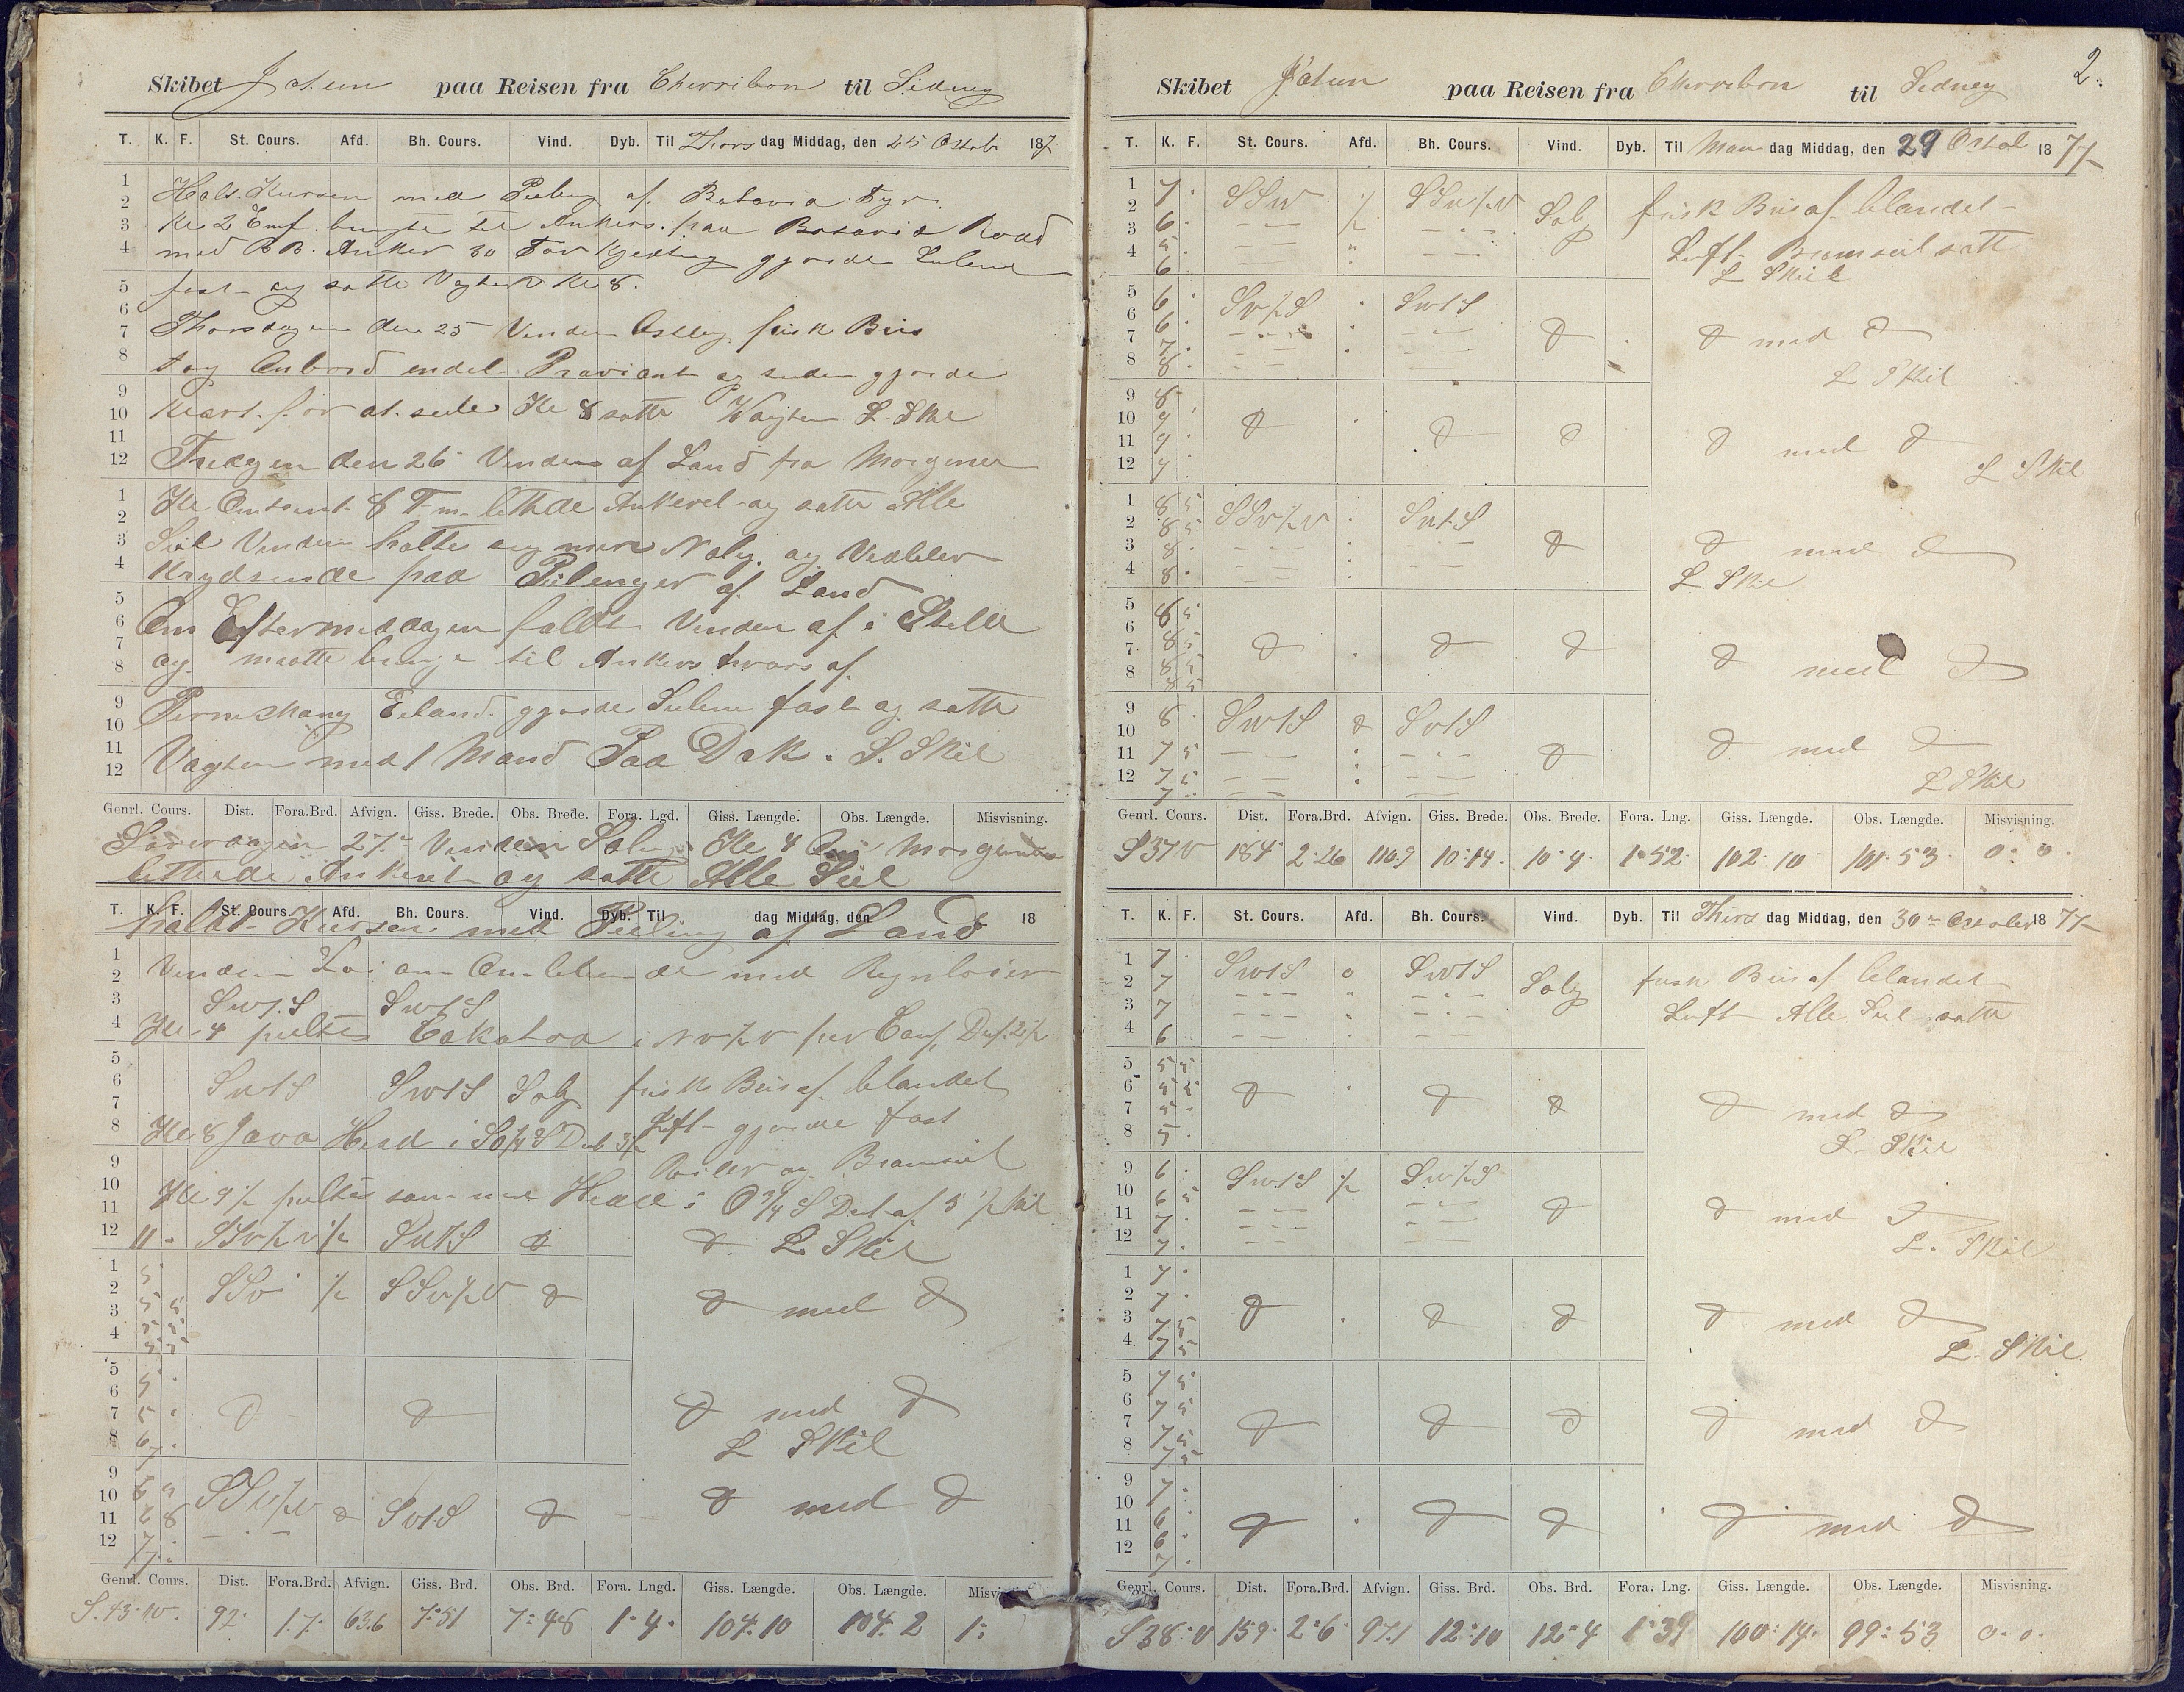 Skibet Jatun paa Reisen fra Cherribon til Sidney
T. K. F. St. Cours. Afd. Bh. Cours. Vind. Dyb. Til Thors dag Middag, den 25 Octob 187
Holt Kursen med Peiling af Batavia Fyr.
Kl 2 Emf. bragte til Ankers paa Batavia Road
med BB. Anker 30 Fav Kjetting gjorde Seilene
fast og satte Vagten Kl 8.
Thorsdagen den 25 Vinden Østlig frisk Bris
tog Ombord endel Proviant og siden gjorde
Klart for at seile Kl 8 satte Vagten L. Skil
Fredagen den 26 Vinden af Land fra Morgenen
Kl Omtrent 8 Fm. lettede Ankeret og satte Alle
Seil Vinden holtte sig mere Nolg. og Vedblev
Krydsende paa Peilinger af Land
Om Eftermiddagen faldt Vinden af i Stille
og maatte bringe til Ankers tvers af
Eiland gjorde Seilene fast og satte
Vagten med 1 Mand Paa Dæk. L. Skil
Genrl. Cours. Dist. Fora.Brd. Afvign. Giss. Brede. Obs. Brede. Fora. Lgd. Giss. Længde. Obs. Længde. Misvisning.
Løverdagen 27 Vinden Solg Kl 4 Om Morgenen
lettede Ankeret og satte Alle Seil
T. K. F. St. Cours. Afd. Bh. Cours. Vind. Dyb. Til dag Middag, den 18
holdt Kursen med Peiling af Land
Vinden Løi om Omløbende med Regnbøier
SwtS SwtS
Kl 4 peiltes Cakatoa i NV½V per Comp Dist 2½
SwtS SwtS Solg frisk Bris af blandet
Kl 8 Java Head i Luft gjorde fast
Røiler og Bramseil
Kl 9½ peiltes samme Head i O¾S Dist af 5½ Mil
11 " SSv½v ½ SwtS d d L. Skil
5 SSv ½ SSv½V d d med d
5 5
5 5
5 5
5 . d d d med d
5 .
6 . L Skil
7 .
6 SSv½v d SvtS d d med d
6 8
7 .
7 .
Genrl. Cours. Dist. Fora.Brd. Afvign. Giss. Brd. Obs. Brd. Fora. Lngd. Giss. Længde. Obs. Længde.
S.43.w. 92 1.7 63.6 7:51 7:48 1:4 104.10 104.2 1:
2.
Skibet Jatun paa Reisen fra Cherribon til Sidney
T. K. F. St. Cours. Afd. Bh. Cours. Vind. Dyb. Til Man dag Middag, den 29 Octob 1877
7 . SSw ½ SSw½w Solg frisk Bris af blandet
6 .
5 . Luft Bramseil satte
6 . L Skil
6 . Sv½S . SwtS
6 . d d med d
7 .
8 . L Skil
8
9 . d . d d d med d
9 .
7 . L Skil
8 5 SSv½v . SwtS
8 5
8 . d d med d
8 . L Skil
8 5
8 5 d . d d d med d
8 5
8 5
8 . SwtS d SvtS
7 5 d d med d
7 5
7 . L Skil
Genrl. Cours. Dist. Fora.Brd. Afvign. Giss. Brede. Obs. Brede. Fora. Lng. Giss. Længde. Obs. Længde. Misvisning.
S37v 184 2:26 110.9 10:14. 10:4. 1:52. 102:10 101:53. 0:0
T. K. F. St. Cours. Afd. Bh. Cours. Vind. Dyb. Til Thirs dag Middag, den 30 October 1877
7 . SwtS o SwtS Solg frisk Bris af blandet
7
7 Luft Alle Seil satte
6
5 5
5 5 d . d d d med d
5 .
5 . L. Skil
6 . SwtS ½ Sw½S
6 5
7 . d d med d
7 . L. Skil
7 .
7 . d . d d d med d
7 5
7 5 L. Skil
7 5
7 5 d d d d med d
7 5
7 5
7 .
6 . d . d d d med d
6 .
7 .
Genrl. Cours. Dist. Fora.Brd. Afvign. Giss. Brd. Obs. Brd. Fora. Lng. Giss. Længde. Obs. Længde. Misvisning.
S38.v 159. 2:6 97.1 12:10 12:4 1:39 100:14. 99:53 0.0.